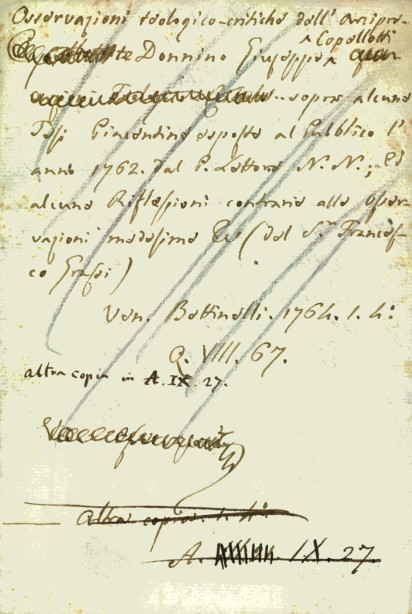 Osservazioni teologico-critiche dell' Arcipre-
te Donnino Giuseppe Copellotti
sopra alcune
Tesi Piacentine esposte al Pubblico l'
anno 1762. dal P. Lettore N. N.; Ed
alcune Riflessioni contrarie alle osser-
vazioni medesime (del Sr. Frances-
co Grassi)
Ven. Bettinelli. 1764. 1. 4º
Q. VIII. 67.
altra copia in A. IX. 27.
altra copia. 1. 4º
A. IX. 27.